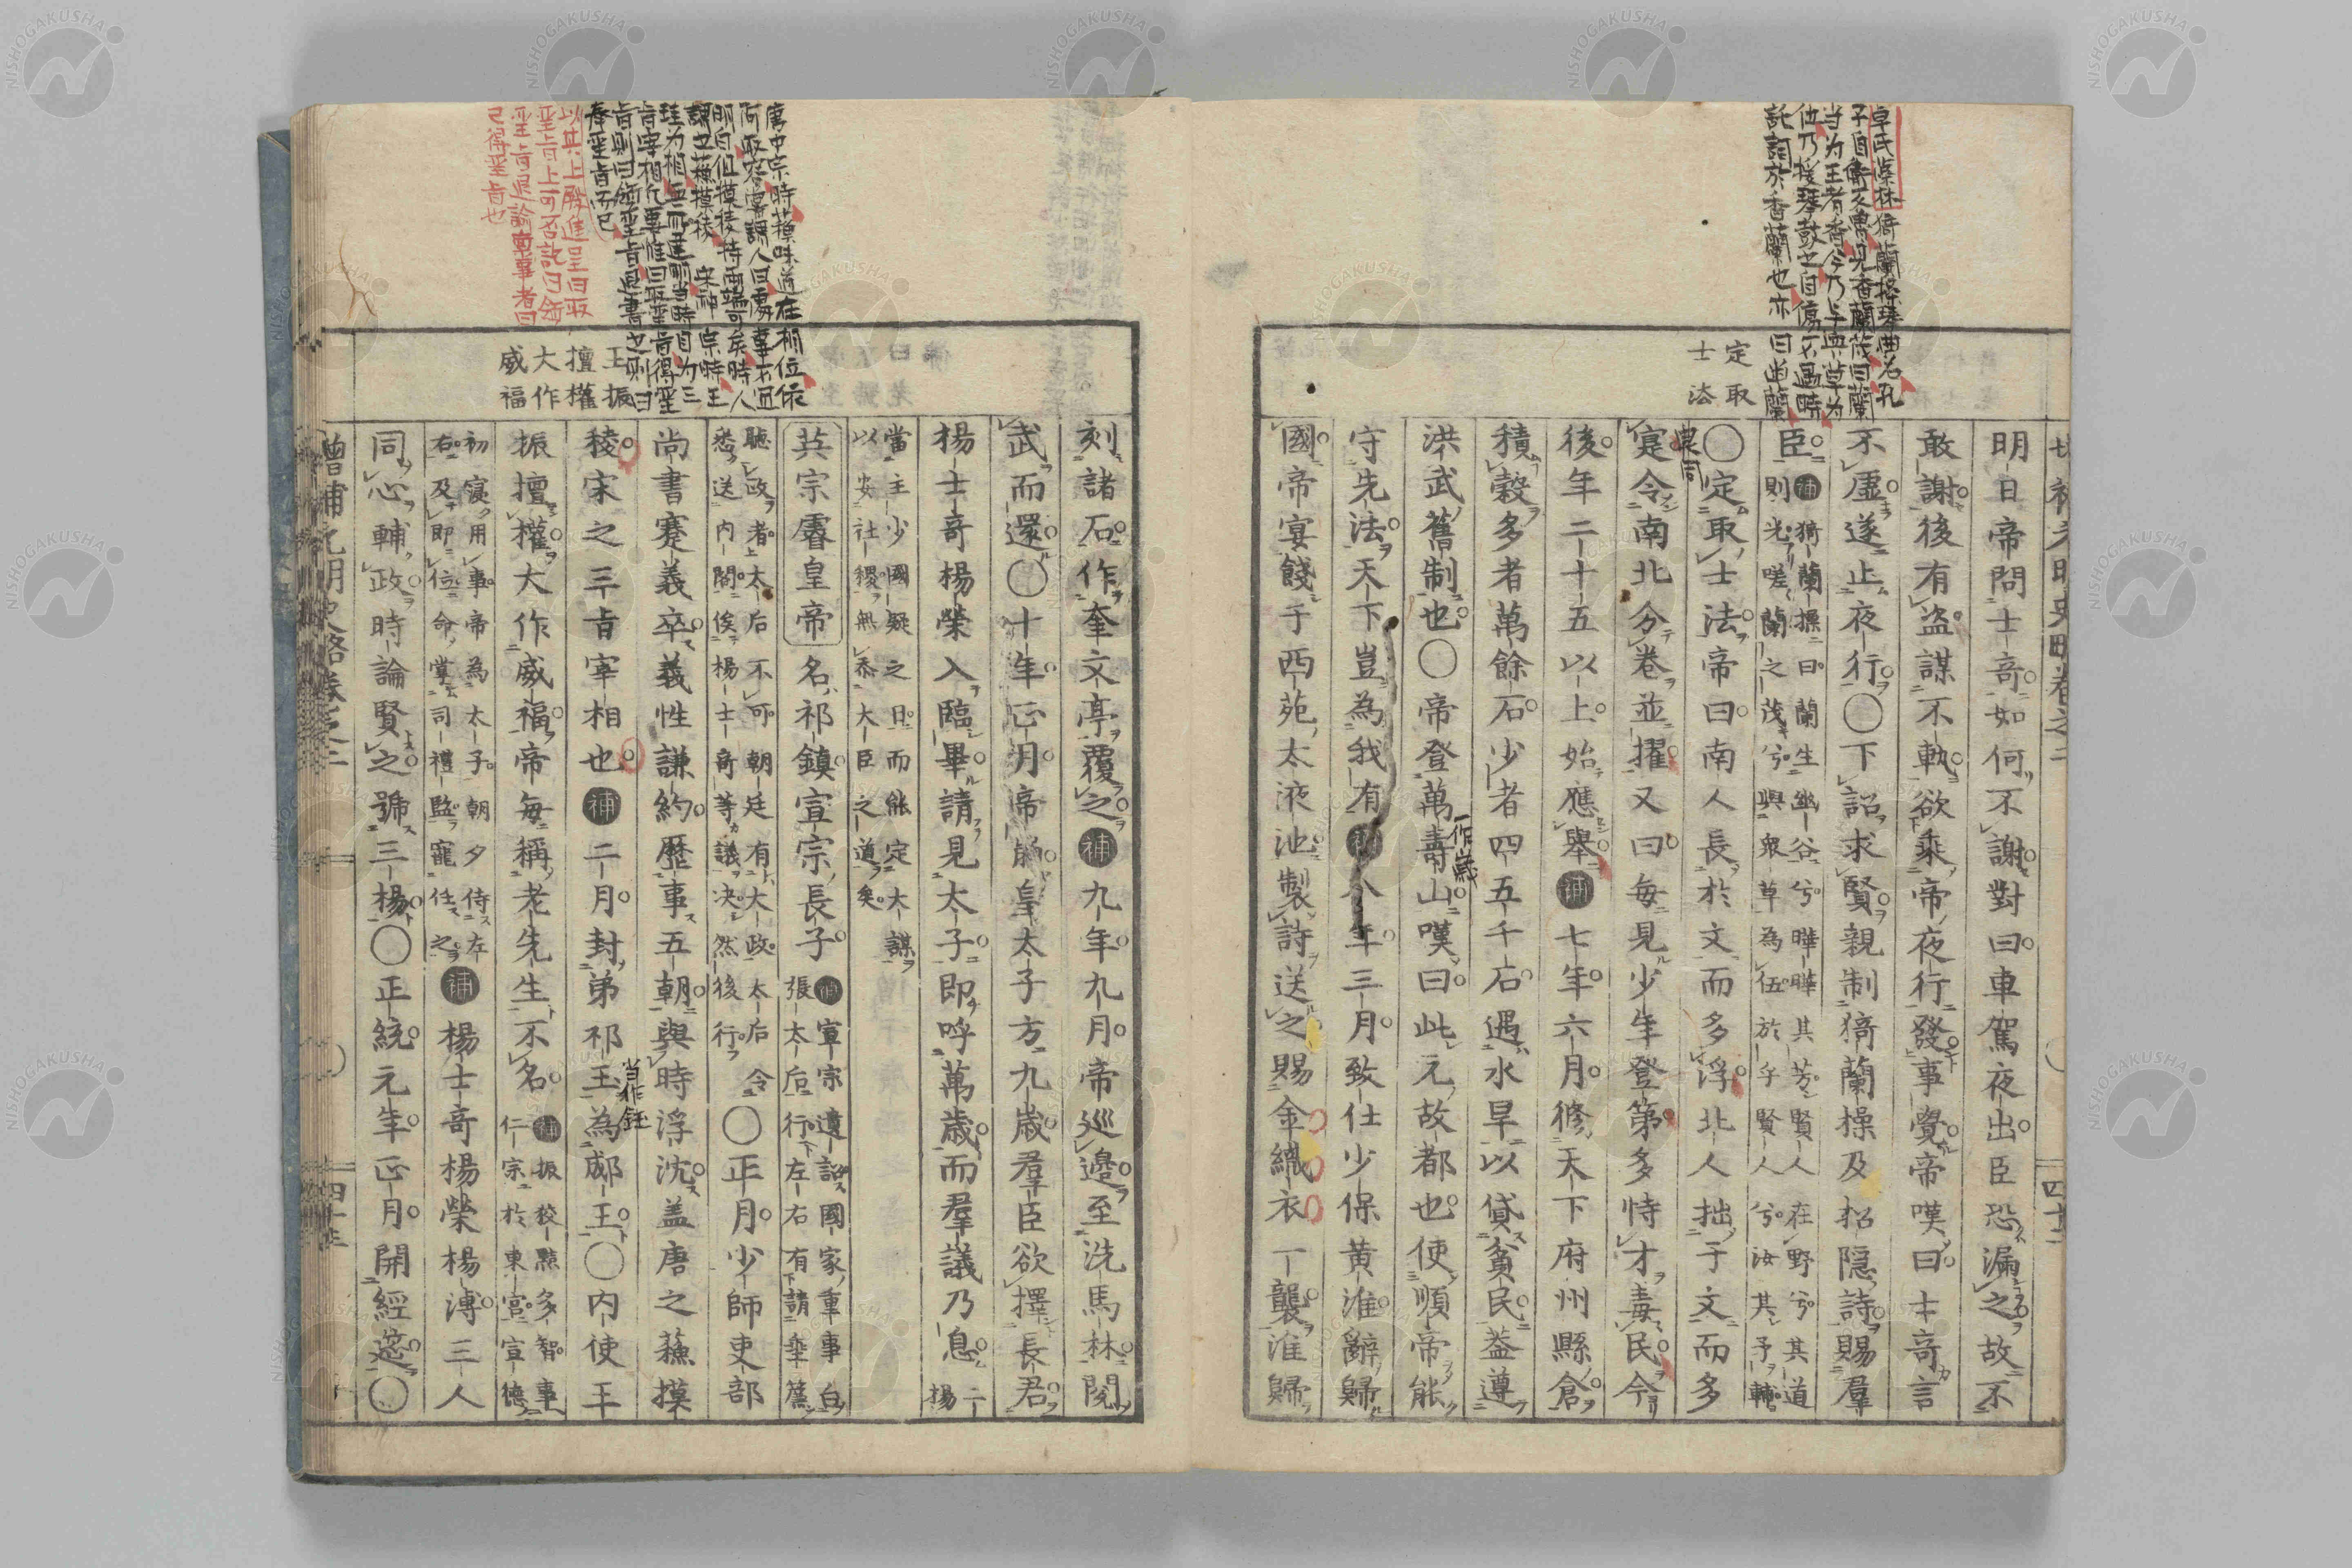 卓氏藻林猗蘭操琴曲名孔
子自衛反魯見香蘭作曰蘭
当为王者香今乃与衆草为
伍乃援琴鼓之自傷不遇時
託詞於香蘭也亦曰幽蘭
定取
士法
明日帝問士竒如何不謝對曰車駕夜出臣恐漏之故不
敢謝後有盗謀不軌欲乘帝夜行發事覺帝嘆曰士竒言
不虚遂止夜行〇下詔求賢親制猗蘭操及招隠詩賜羣
臣補猗蘭操曰蘭生幽谷兮曄曄其芳賢人在野兮其道
則光嗟蘭之茂兮與衆草為伍於乎賢人兮汝其予輔
〇定取士法帝曰南人長於文而多浮北人拙于文而多
寔令南北分卷並擢又曰毎見少年登第多恃才毒民今
後年二十五以上始應舉補七年六月修天下府州縣倉
積穀多者萬餘石少者四五千石遇水旱以貸貧民葢遵
洪武舊制也〇帝登萬壽山嘆曰此元故都也使順帝能
一作歳
守先法天下豈為我有補八年三月致仕少保黄淮辭歸
國帝宴餞于西苑太液池製詩送之賜金織衣一襲淮歸
唐中宗時蘓味道在相位依
阿取容嘗謂人曰處事不宜
明白但摸稜持兩端可矣時人
謂之蘓摸稜 宋神宗時王
珪为相無所建明当時目为三
旨宰相凡要惟曰取聖旨得聖
旨則曰領聖旨退書之則曰
奉聖旨而已
以其上殿進呈曰取
聖旨上可否訖曰領
聖旨退諭稟事者曰
已得聖旨也
王振
擅權
大作
威福
刻諸石作奎文亭覆之補九年九月帝巡邊至洗馬林閲
武而還〇十年正月帝崩皇太子方九歳羣臣欲擇長君
楊士竒楊榮入臨畢請見太子即呼萬歳而羣議乃息二楊
當主少國疑之日而能定大謀
以安社稷無忝大臣之道矣
英宗睿皇帝名祁鎮宣宗長子補宣宗遺詔國家重事白
張太后行左右有請垂簾
聴政者太后不可朝廷有大政太后令
悉送内閣俟楊士竒等議决然後行〇正月少師吏部
尚書蹇義卒義性謙約歴事五朝與時浮沈盖唐之蘓摸
稜宋之三旨宰相也補二月封弟祁王為郕王〇内使王
当作鈺
振擅權大作威福帝毎稱老先生不名補振狡黠多智事
仁宗於東宮宣徳
初寝用事帝為太子朝夕侍左
右及即位命掌司禮監寵任之補楊士竒楊榮楊溥三人
同心輔政時論賢之號三楊〇正統元年正月開經筵〇